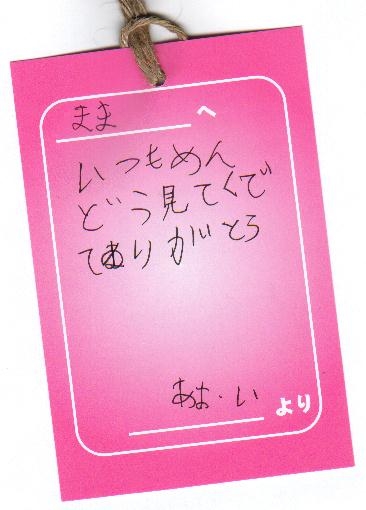 まま へ
いつもめん
どう見てくで
てありがとろ
あお・い より